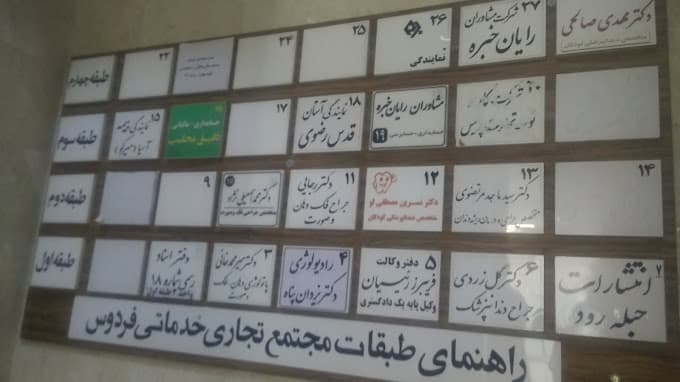 طبقه چهارم
۲۳
۲۴
۲۵
۲۶
نمایندگی
۲۷
شرکت مشاوران
رایان خبره
دکتر مهدی صالحی
طبقه سوم
۱۵
حسابداری - مالیاتی
۱۷
۱۸
نمایندگی آستان
قدس رضوی
مشاوران رایان خبره
حسابداری - حسابرسی
۱۹
طبقه دوم
۹
۱۱
دکتر رجایی
جراح فک و دهان
و صورت
۱۲
دکتر نسرین مصطفی لو
متخصص دندانپزشکی کودکان
۱۳
دکتر سید ماجد مرتضوی
۱۴
طبقه اول
دفتر اسناد
رسمی شماره ۱۸
۳
۴
رادیولوژی
دکتر یزدان پناه
۵
دفتر وکالت
فریبرز زنسیان
وکیل پایه یک دادگستری
۶
دکتر گل زردی
جراح دندانپزشک
۷
انتشارات
حبله رود
راهنمای طبقات مجتمع تجاری خدماتی فردوس